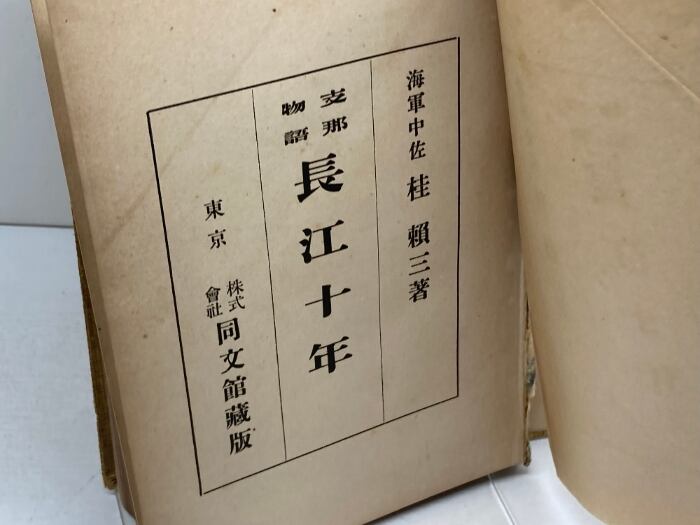 海軍中佐 桂 賴三著
支那物語 長江十年
東京 株式會社 同文館藏版